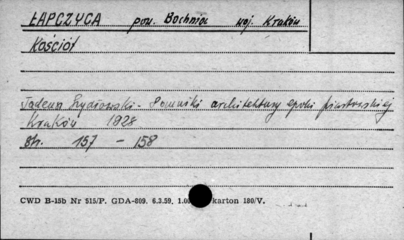 ŁAPCZYCA pow. Bochnia woj. Kraków
Kościół
Tadeusz Szydłowski - Pomniki architektury epoki piastowskiej
Kraków 1928
str. 157 - 158
CWD B-15b Nr 515/P. GDA-809. 6.3.59. 1.00 karton 180/V.